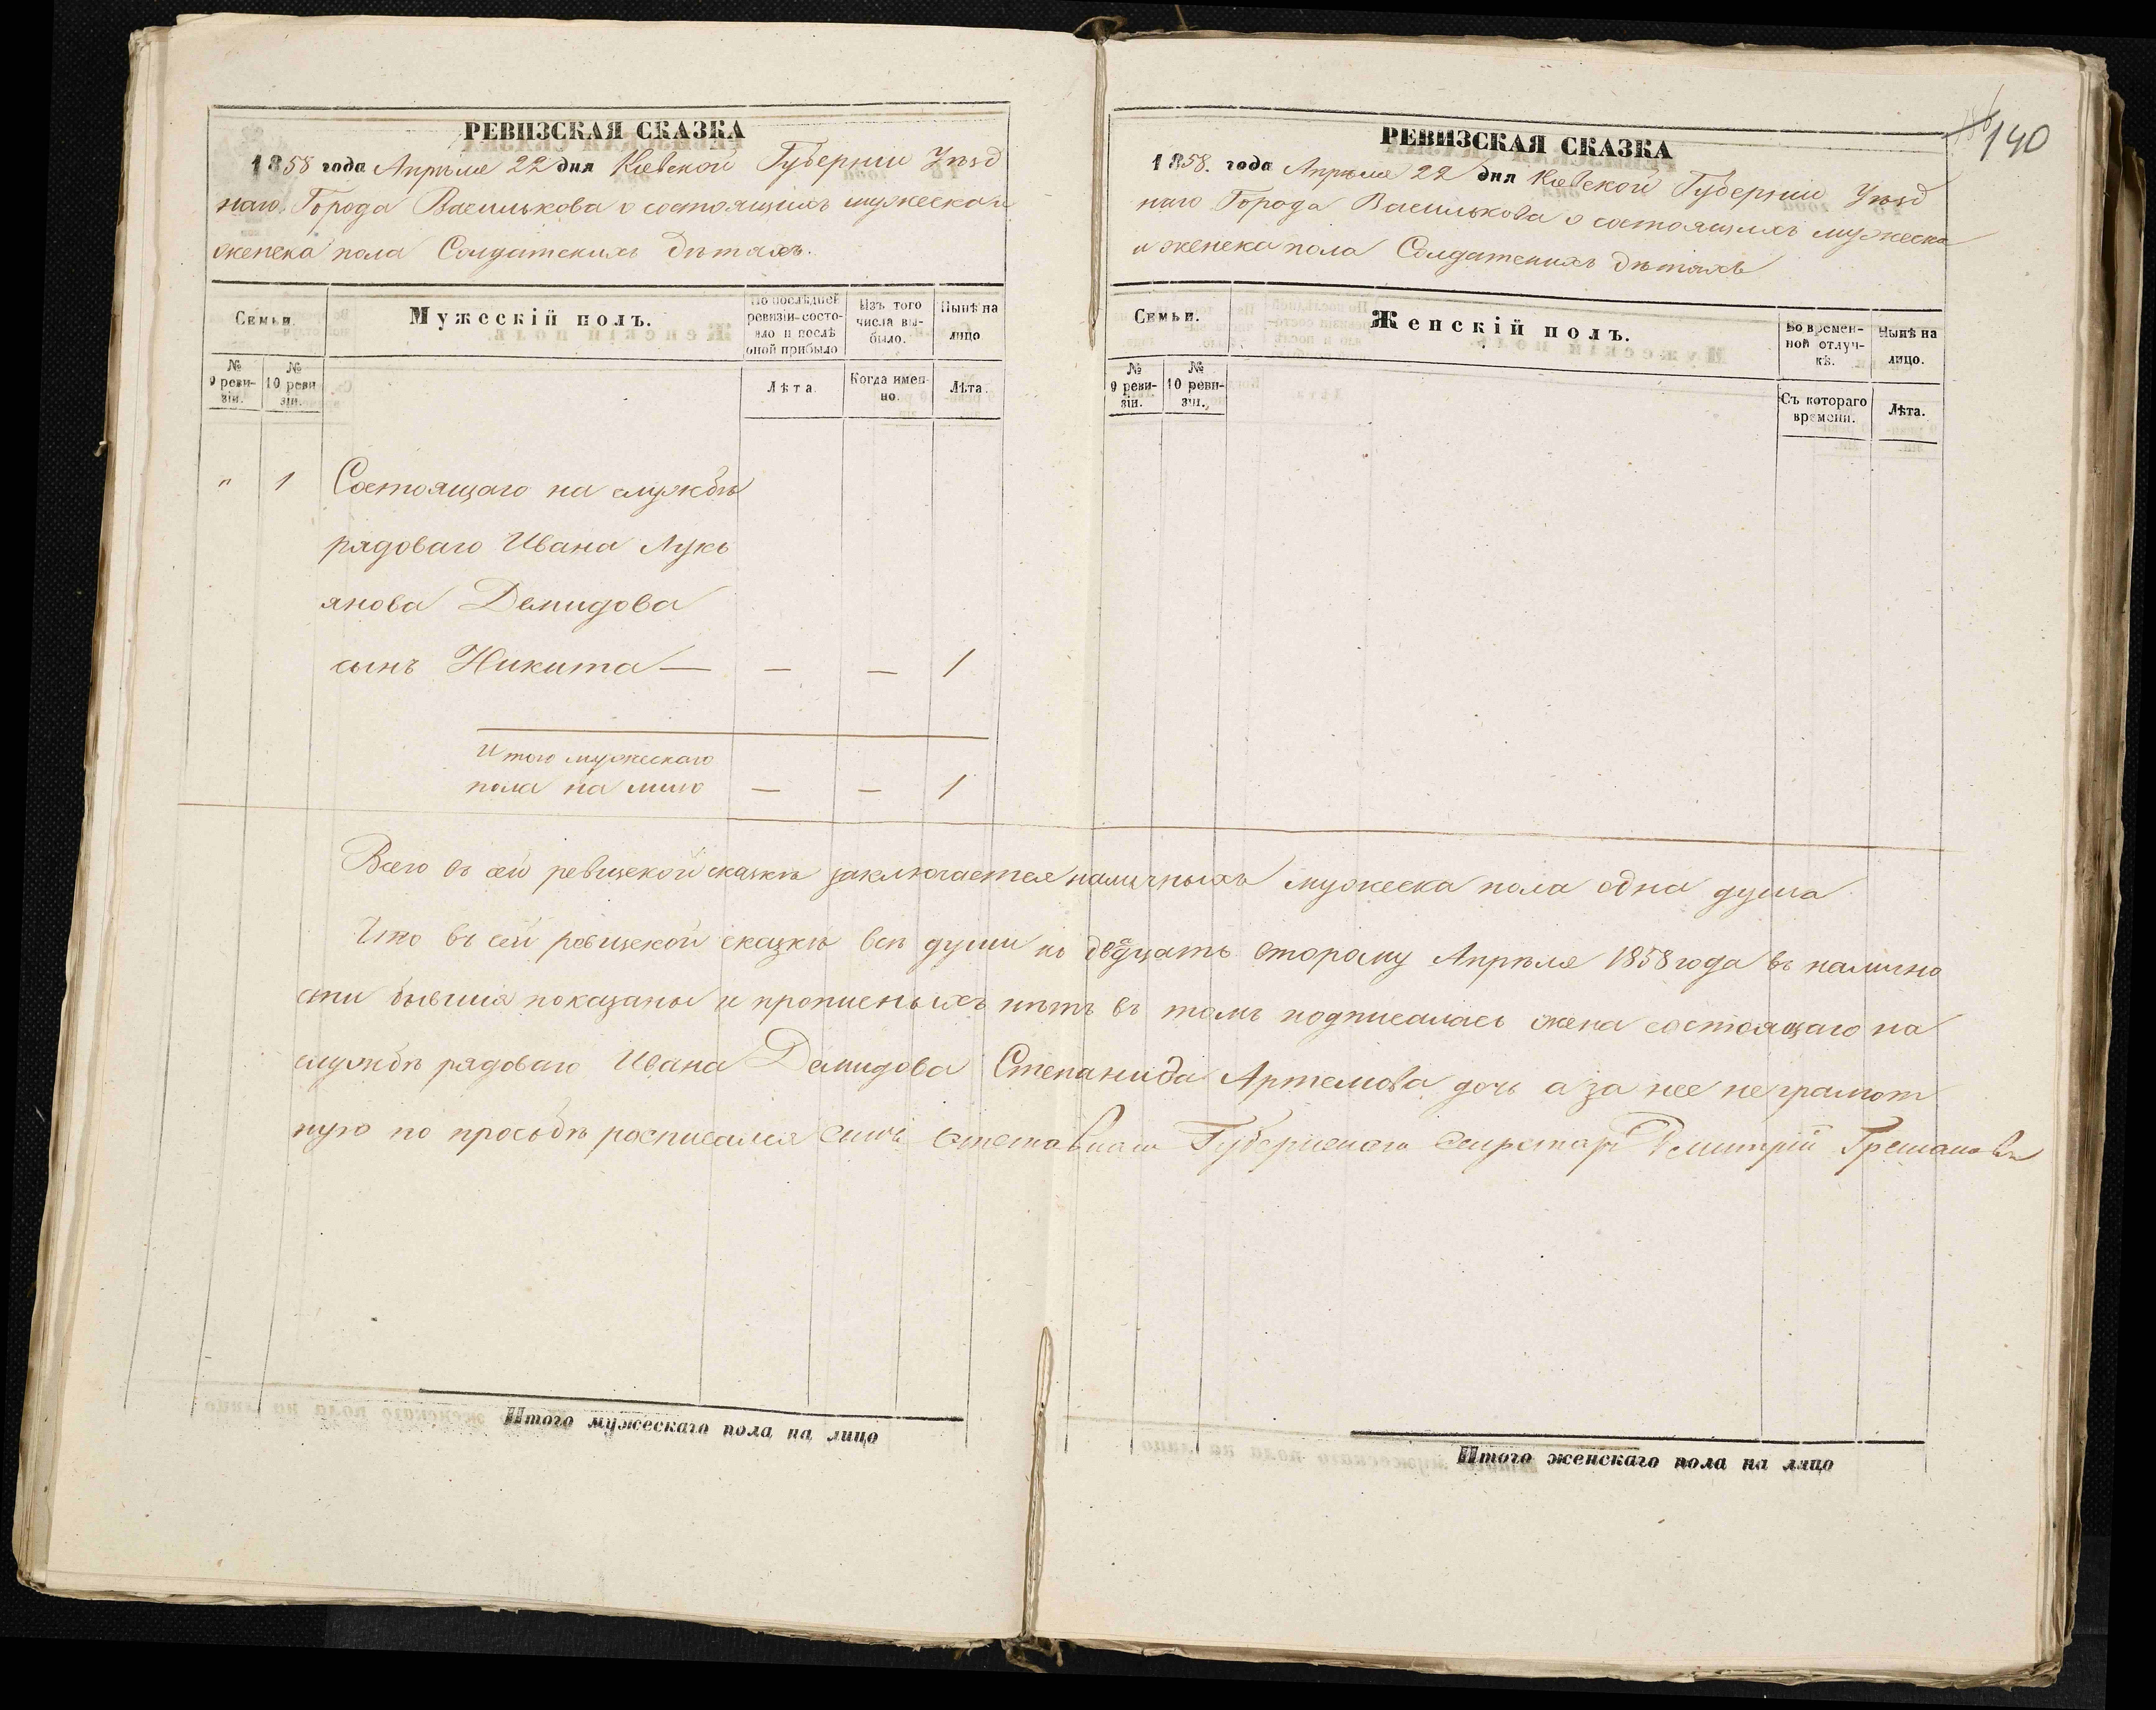 РЕВИЗСКАЯ СКАЗКА
1858 года Апрѣля 22 дня Кіевской Губерніи Уѣзд
наго Города Василькова о состоящихъ мужеска и
женска пола Солдатскихъ дѣтяхъ.
Семьи.
Мужескій полъ.
По послѣдней ревизіи состо-
яло и послѣ
оной прибыло
Изъ того
числа вы-
было.
Нынѣ на
лицо
№
9 реви-
зіи.
№
10 реви
зіи.
Лѣта.
Когда имен-
но.
Лѣта.
" 1 Состоящаго на службѣ
рядоваго Ивана Лукь
янова Демидова
сынъ Никита — — — 1
Итого мужескаго
пола на лицо — — 1
Итого мужескаго пола на лицо
140
РЕВИЗСКАЯ СКАЗКА
1858. года Апрѣля 22 дня Кіевской Губерніи Уѣзд
наго Города Василькова о состоящихъ мужеска
и женска пола Солдатскихъ дѣтяхъ
Семьи.
Женскій полъ.
Во времен-
ной отлуч-
кѣ.
Нынѣ на
лицо.
№
9 реви-
зіи.
№
10 реви-
зіи.
Съ котораго
времени.
Лѣта.
Всего въ сей ревизской сказкѣ заключается наличныхъ мужеска пола одна душа
Что въ сей ревизской сказкѣ всѣ души по двадцать второму Апрѣля 1858 года въ налично
сти бывшія показаны и прописныхъ нѣтъ въ томъ подписалась жена состоящаго на
службѣ рядоваго Ивана Демидова Степанида Артемова дочь а за нее неграмот
ную по просьбѣ росписался сынъ отставнаго Губернскаго Секретаря Дмитрій
Итого женскаго пола на лицо